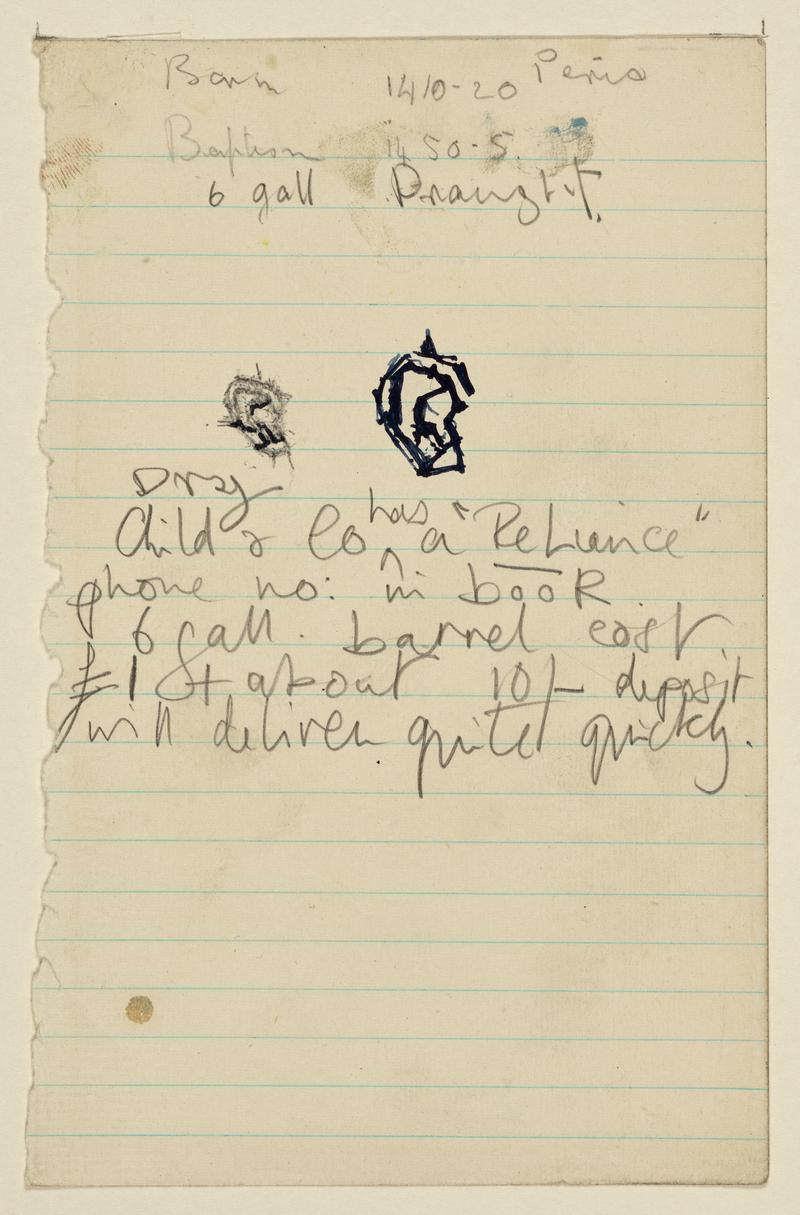 Born 1410-20 Perio
Baptism 1450-5.
6 gall Draught.
Dray
Child & Co has a "Reliance"
phone no: in book
6 gall. barrel cost.
£1 + about 10/- deposit
will deliver quite quickly.